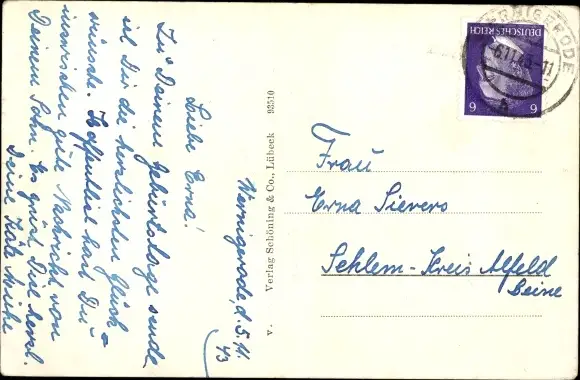 Wernigerode, d. 5.11.
43
Liebe Erna!
Zu Deinem Geburtstage sende
ich Dir die herzlichsten Glück-
wünsche. Hoffentlich hast Du
inzwischen gute Nachricht von
Deinem Sohn. Es grüßt Dich herzl.
Deine Käte
v. Verlag Schöning & Co., Lübeck 93510
WERNIGERODE
-6.11.43-11
DEUTSCHES REICH
6 6
Frau
Erna Sievers
Sehlem-Kreis Alfeld
Leine